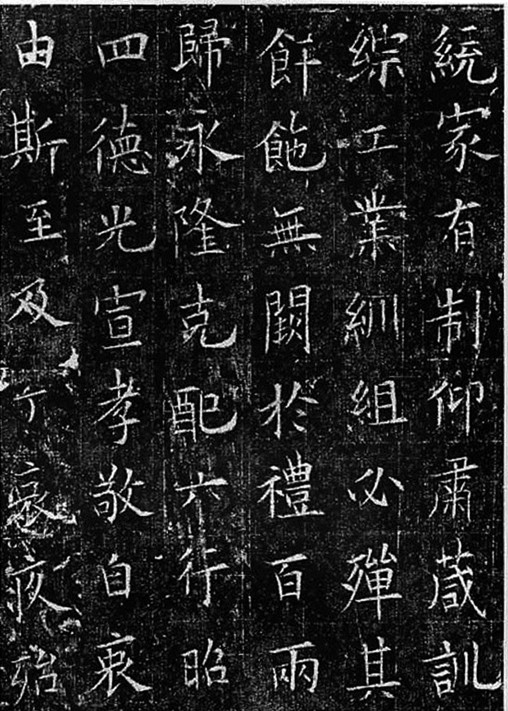 統家有制仰肅葴訓
綜工業紃組必殫其
餅無闕於禮百兩
歸永隆克配六行昭
四德光宣孝敬自衷
由斯至及丁哀疚殆